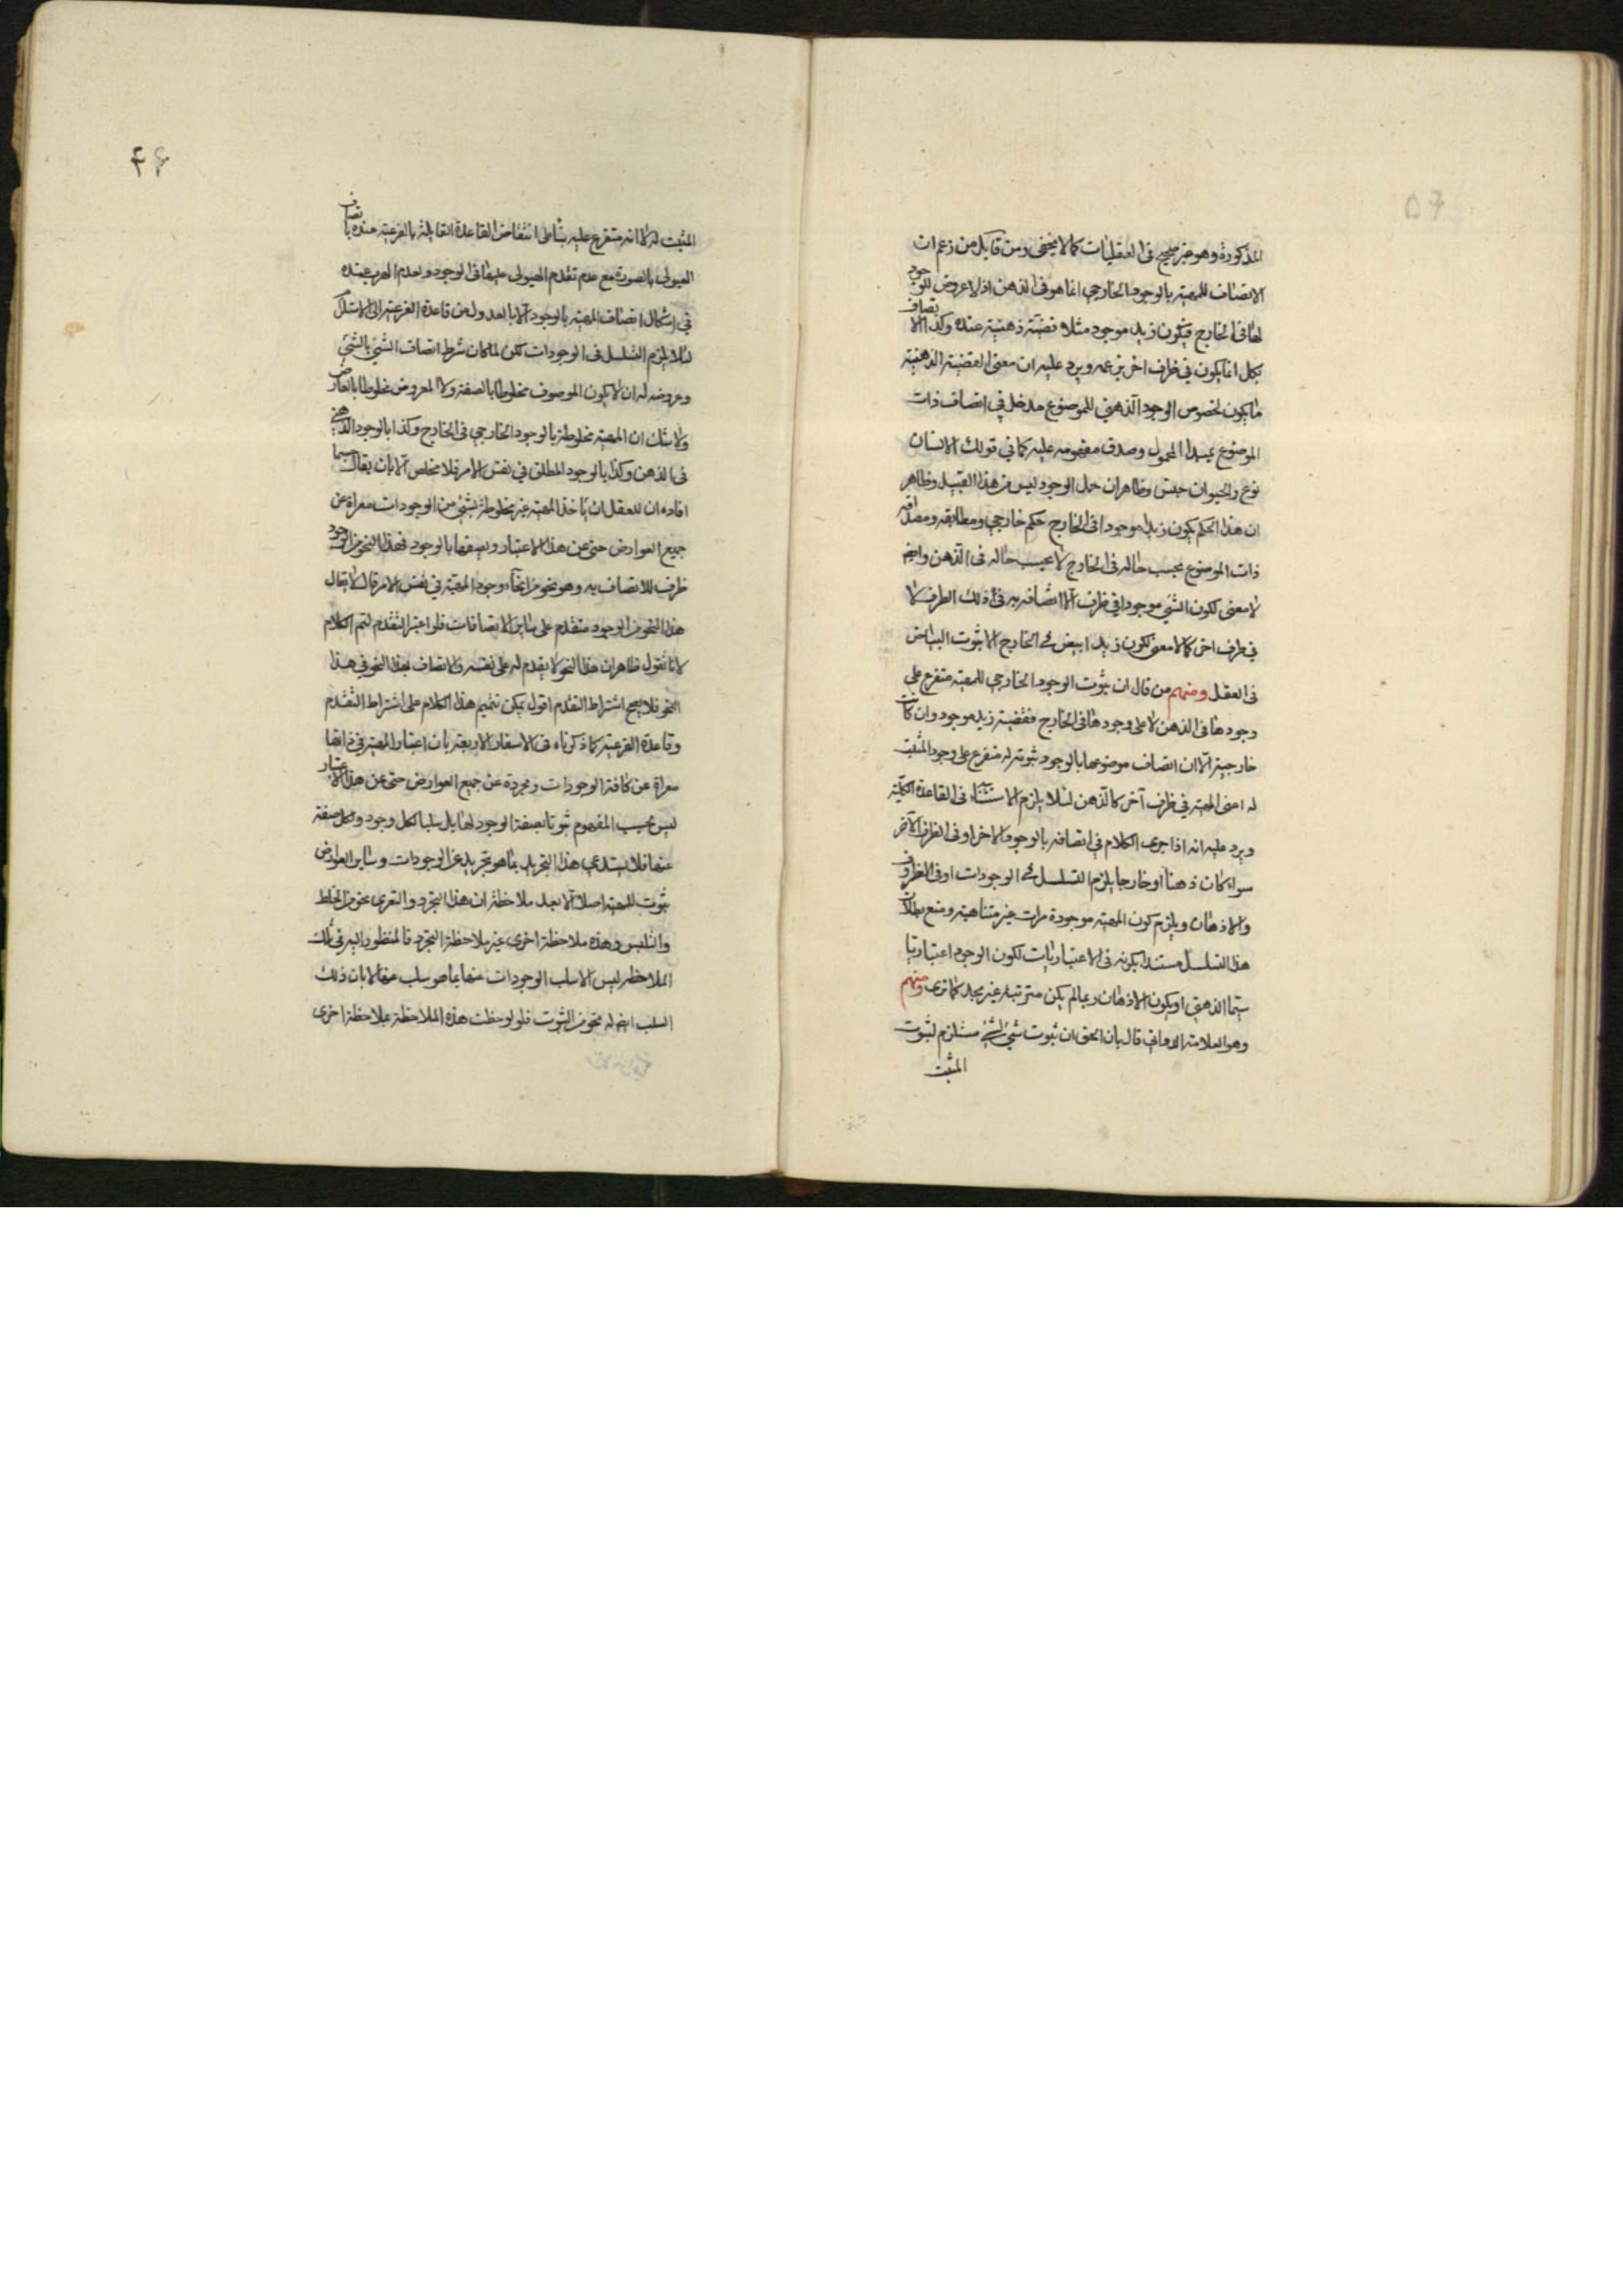 المذكورة وهو غير صحيح فى العقليات كما لا يخفى ومن قايل من زعم ان
الاتصاف للمهية بالوجود الخارجي انما هو فى الذهن اذ لا عروض للوجود
لها فى الخارج فيكون زيد موجود مثلا قضية ذهنية عنده وكذا الاتصاف
بكل انما يكون في ظرف اخر بزعمه ويرد عليه ان معنى القضية الذهنية
ما يكون لخصوص الوجود الذهني للموضوع مدخل في اتصاف ذات
الموضوع بمبدا المحمول وصدق مفهومه عليه كما في قولك الانسان
نوع والحيوان جنس وظاهر ان حمل الوجود ليس من هذا القبيل وظاهر
ان هذا الحكم بكون زيد موجودا فى الخارج حكم خارجي ومطابقه ومصداقه
ذات الموضوع بحسب حاله فى الخارج لا بحسب حاله فى الذهن وايضا
لا معنى لكون الشئ موجودا في ظرف الا اتصافه به فى ذلك الظرف لا
في ظرف اخر كما لا معنى لكون زيد ابيض في الخارج الا ثبوت البياض
فى العقل ومنهم من قال ان ثبوت الوجود الخارجي للمهية متفرع على
وجودها فى الذهن لا على وجودها فى الخارج فقضية زيد موجود وان كانت
خارجية الا ان اتصاف موضوعها بالوجود ثبوته له متفرع على وجود المثبت
له اعنى المهية في ظرف آخر كالذهن لئلا يلزم الاستثناء فى القاعدة الكلية
ويرد عليه انه اذا جرى الكلام في اتصافه بالوجود الاخر او فى الظرف الآخر
سواء كان ذهنا او خارجا يلزم التسلسل في الوجودات او فى الظروف
والاذهان ويلزم كون المهية موجودة مرات غير متناهية ومنع بطلان
هذا التسلسل مستندا بكونه فى الاعتباريات لكون الوجود اعتباريا
سيما الذهني او بكون الاذهان ربما لم يكن مترتبة غير مجد كما ترى ومنهم
وهو العلامة الدواني قال بان الحق ان ثبوت شئ لشئ مستلزم لثبوت
المثبت
المثبت له لا انه متفرع عليه بناء على انتقاض القاعدة القايلة بالفرعية عنده باتصاف
الهيولى بالصورة مع عدم تقدم الهيولى عليها فى الوجود ولعدم الهرب عنده
في اشكال اتصاف المهية بالوجود الا بالعدول من قاعدة الفرعية الى الاستلزام
لئلا يلزم التسلسل فى الوجودات لكن لما كان شرط اتصاف الشئ بالشئ
وعروضه له ان لا يكون الموصوف مخلوطا بالصفة ولا المعروض مخلوطا بالعارض
ولا شك ان المهية مخلوطة بالوجود الخارجي فى الخارج وكذا بالوجود الذهني
فى الذهن وكذا بالوجود المطلق في نفس الامر فلا مخلص الا بان يقال كما
افاده ان للعقل ان ياخذ المهية غير مخلوطة بشئ من الوجودات معراة عن
جميع العوارض حتى عن هذا الاعتبار ويصفها بالوجود فهذا النحو من الوجود
ظرف للاتصاف به وهو نحو من انحاء وجود المهية في نفس الامر قال لا يقال
هذا النحو من الوجود متقدم على ساير الاتصافات فلو اعتبر التقدم لتم الكلام
لانا نقول ظاهر ان هذا النحو لا يقدم له على نفسه والاتصاف بهذا النحو في هذا
النحو فلا يصح اشتراط التقدم اقول يمكن تتميم هذا الكلام على اشتراط التقدم
وقاعدة الفرعية كما ذكرناه فى الاسفار الاربعة بان اعتبار المهية في ذاتها
معراة عن كافة الوجودات ومجردة عن جميع العوارض حتى عن هذا الاعتبار
ليس بحسب المفهوم ثبوتا بصفة الوجود لها بل سلبا لكل وجود ولكل صفة
عنها فلا يستدعي هذا التجريد بما هو تجريد عن الوجودات وساير العوارض
ثبوت للمهية اصلا الا بعد ملاحظة ان هذا التجرد والتعرى نحو من الخلط
والتلبس وهذه ملاحظة اخرى غير ملاحظة التجرد فالمنظور اليه فى تلك
الملاحظة ليس الا سلب الوجودات عنها بما هو سلب عنها لا بان ذلك
السلب ايضا له نحو من الثبوت فلو لوحظت هذه الملاحظة بملاحظة اخرى